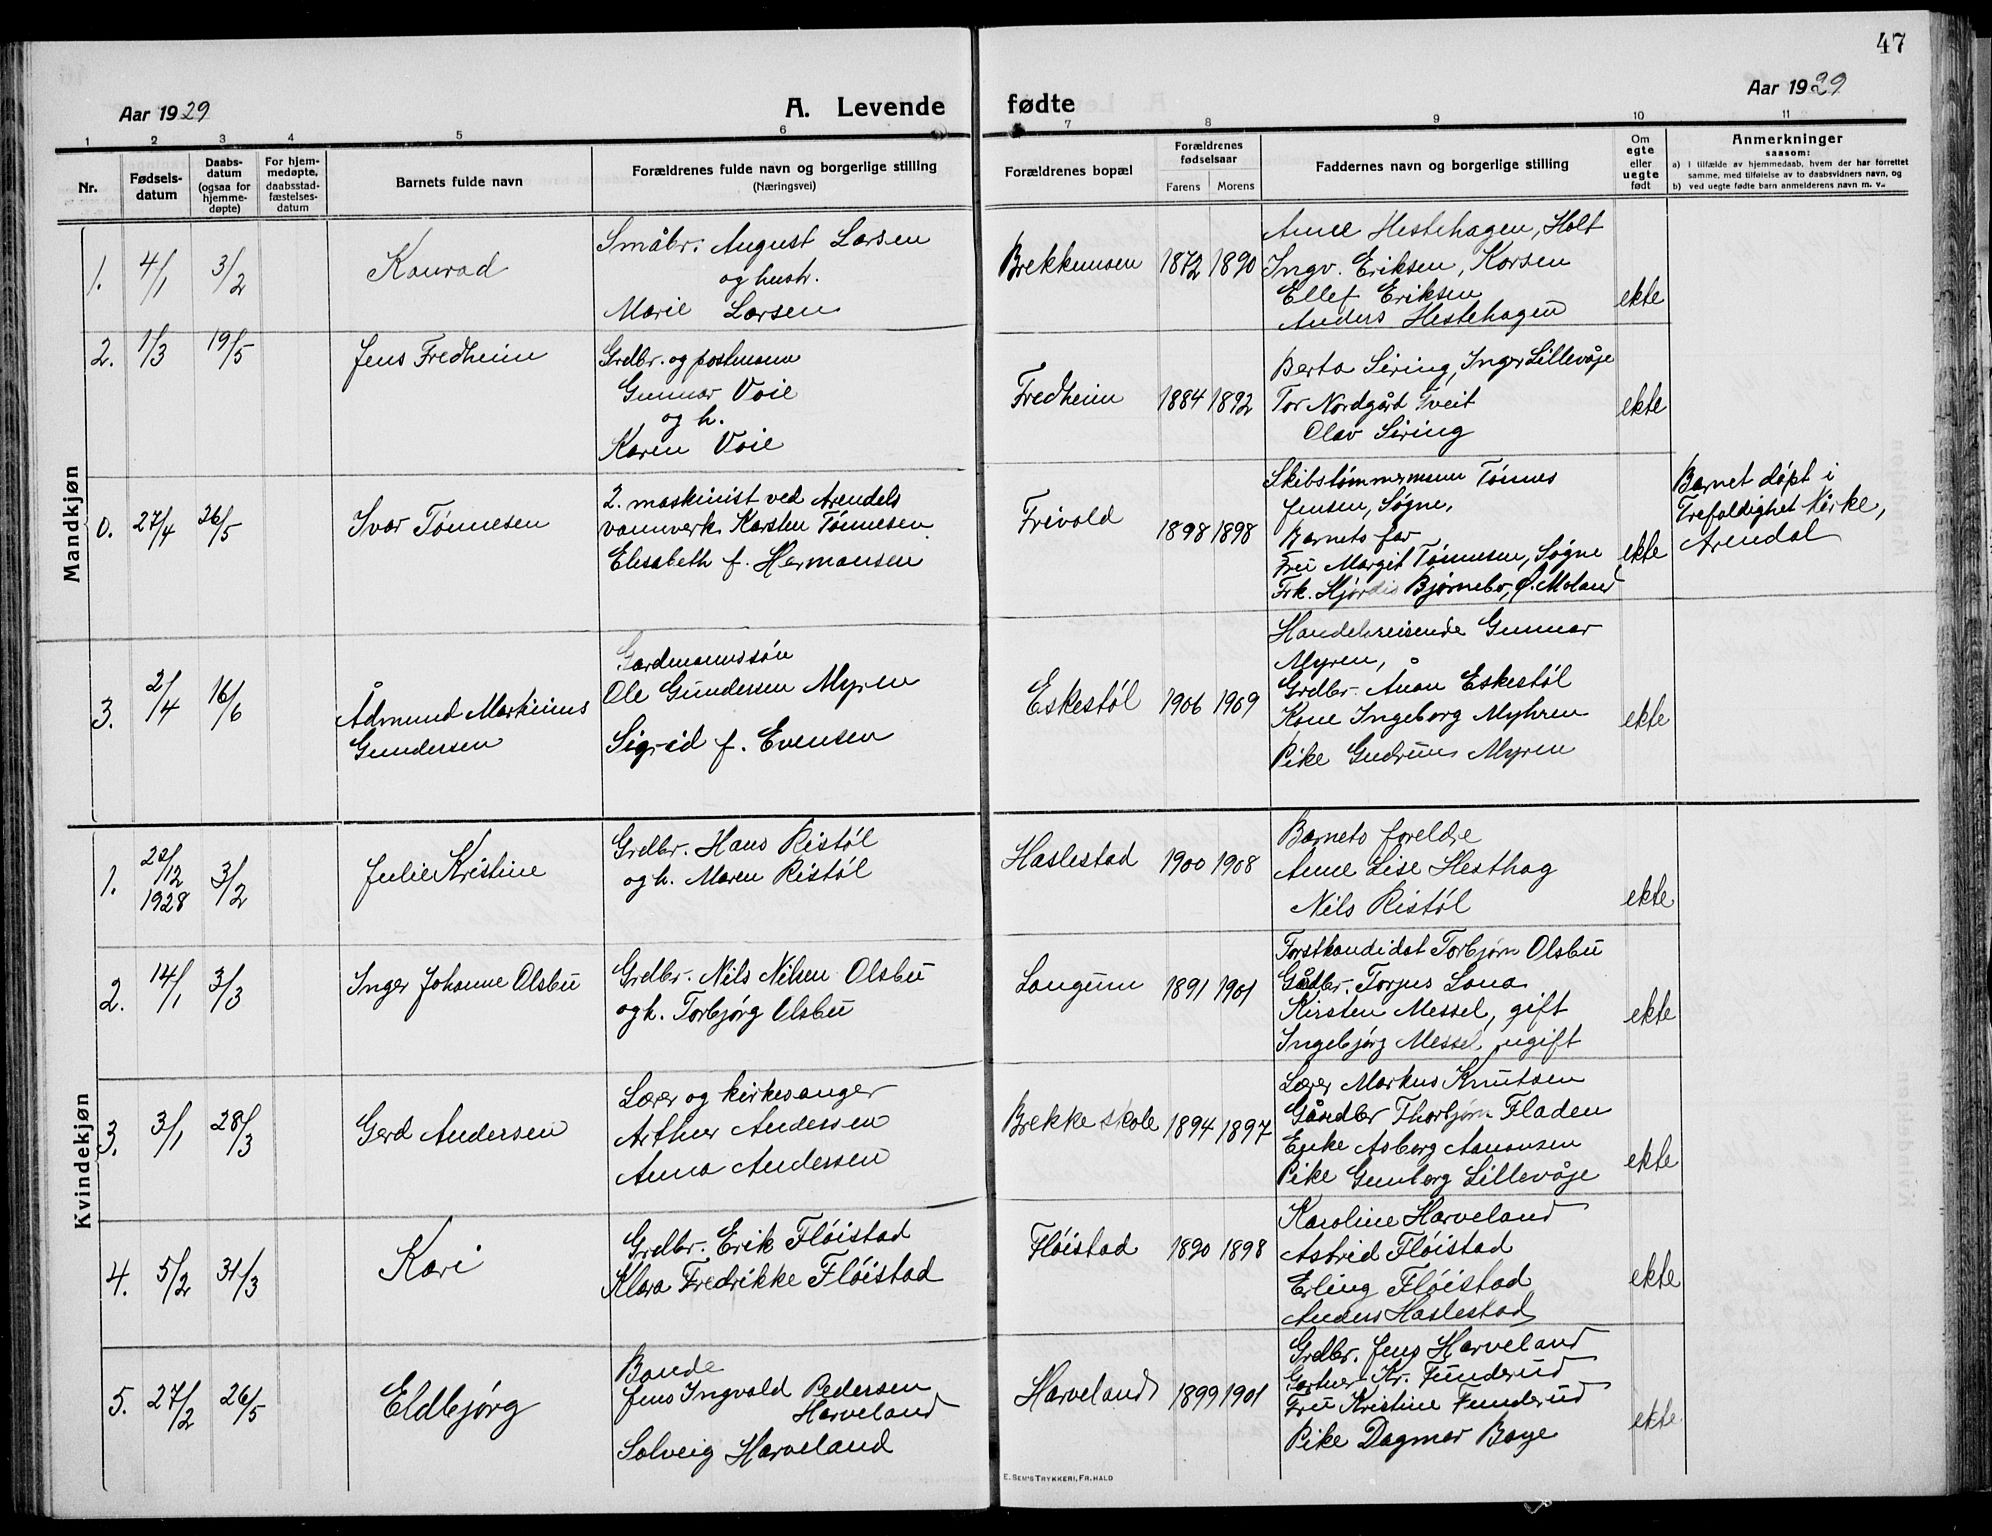 47
Aar 1929
A. Levende fødte
Aar 1929
1 2 3 4 5 6 7 8 9 10 11
Nr.
Fødsels-
datum
Daabs-
datum
(ogsaa for
hjemme-
døpte)
For hjem-
medøpte,
daabsstad-
fæstelses-
datum
Barnets fulde navn
Forældrenes fulde navn og borgerlige stilling
(Næringsvei)
Forældrenes bopæl
Forældrenes
fødselsaar
Farens Morens
Faddernes navn og borgerlige stilling
Om
egte
eller
uegte
født
Anmerkninger
saasom:
a) i tilfælde av hjemmedaab, hvem der har forrettet
samme, med tilføielse av to daabsvidners navn, og
b) ved uegte fødte barn anmelderens navn m. v.
Mandkjøn
1. 4/1 3/2 Konrad
Småbr. August Larsen
og hustr.
Marie Larsen
Brekkemoen 1872 1890
Anne Hestehagen, Holt
Ingv. Eriksen, Korsen
Ellef Eriksen
Anders Hestehagen
ekte
2. 1/3 19/5 Jens Fredheim
Grdbr. og postmann
Gunnar Voie
og h.
Karen Voie
Fredheim 1884 1892
Berta Siring, Inger Lillevåje
Tor Nordgård Tveit
Olav Siring
ekte
0. 27/4 26/5 Ivar Tønnesen
2. maskinist ved Arendals
vannverk Karsten Tønnesen
Elisabeth f. Hermansen
Frivold 1898 1898
Skibstømmermann Tønnes
Jensen, Søgne,
Barnets far
Fru Margit Tønnesen, Søgne
Frk. Hjørdis Bjørnebo, Ø. Moland
ekte
Barnet døpt i
Trefoldighet kirke,
Arendal
3. 2/4 16/6 Ådmund Markinius
Gundersen
Gardmannssøn
Ole Gundersen Myren
Sigrid f. Evensen
Eskestøl 1906 1909
Handelsreisende Gunnar
Myren,
Grdbr. Ånon Eskestøl
Kone Ingeborg Myhren
Pike Gudrun Myren
ekte
Kvindekjøn
1. 22/12
1928 3/2 Julie Kristine
Grdbr. Hans Ristøl
og h. Maren Ristøl
Haslestad 1900 1908
Barnets foreldre
Anne Lise Hesthag
Nils Ristøl
ekte
2. 14/1 3/3 Inger Johanne Olsbu
Grdbr. Nils Nilsen Olsbu
og h. Torbjørg Olsbu
Longum 1891 1901
Forstkandidat Torbjørn Olsbu
Gådbr. Torjus Lona
Kirsten Messel, gift
Ingebjørg Messel, ugift
ekte
3. 3/1 28/3 Gerd Andersen
Lærer og kirkesanger
Arthur Andersen
Anna Andersen
Brekke skole 1894 1897
Lærer Markus Knutsen
Gårdbr Thorbjørn Fladen
Enke Asborg Aanonsen
Pike Gunborg Lillevåje
ekte
4. 5/2 31/3 Kari
Grdbr. Erik Fløistad
Klara Fredrikke Fløistad
Fløistad 1890 1898
Karoline Harveland
Astrid Fløistad
Erling Fløistad
Anders Haslestad
ekte
5. 27/2 26/5 Eldbjørg
Bonde
Jens Ingvald Pedersen
Harveland
Solveig Harveland
Harveland 1899 1901
Grdbr. Jens Harveland
Gartner Kr. Funderud
Fru Kristine Funderud
Pike Dagmar Boye
ekte
E. SEM'S TRYKKERI, FR. HALD